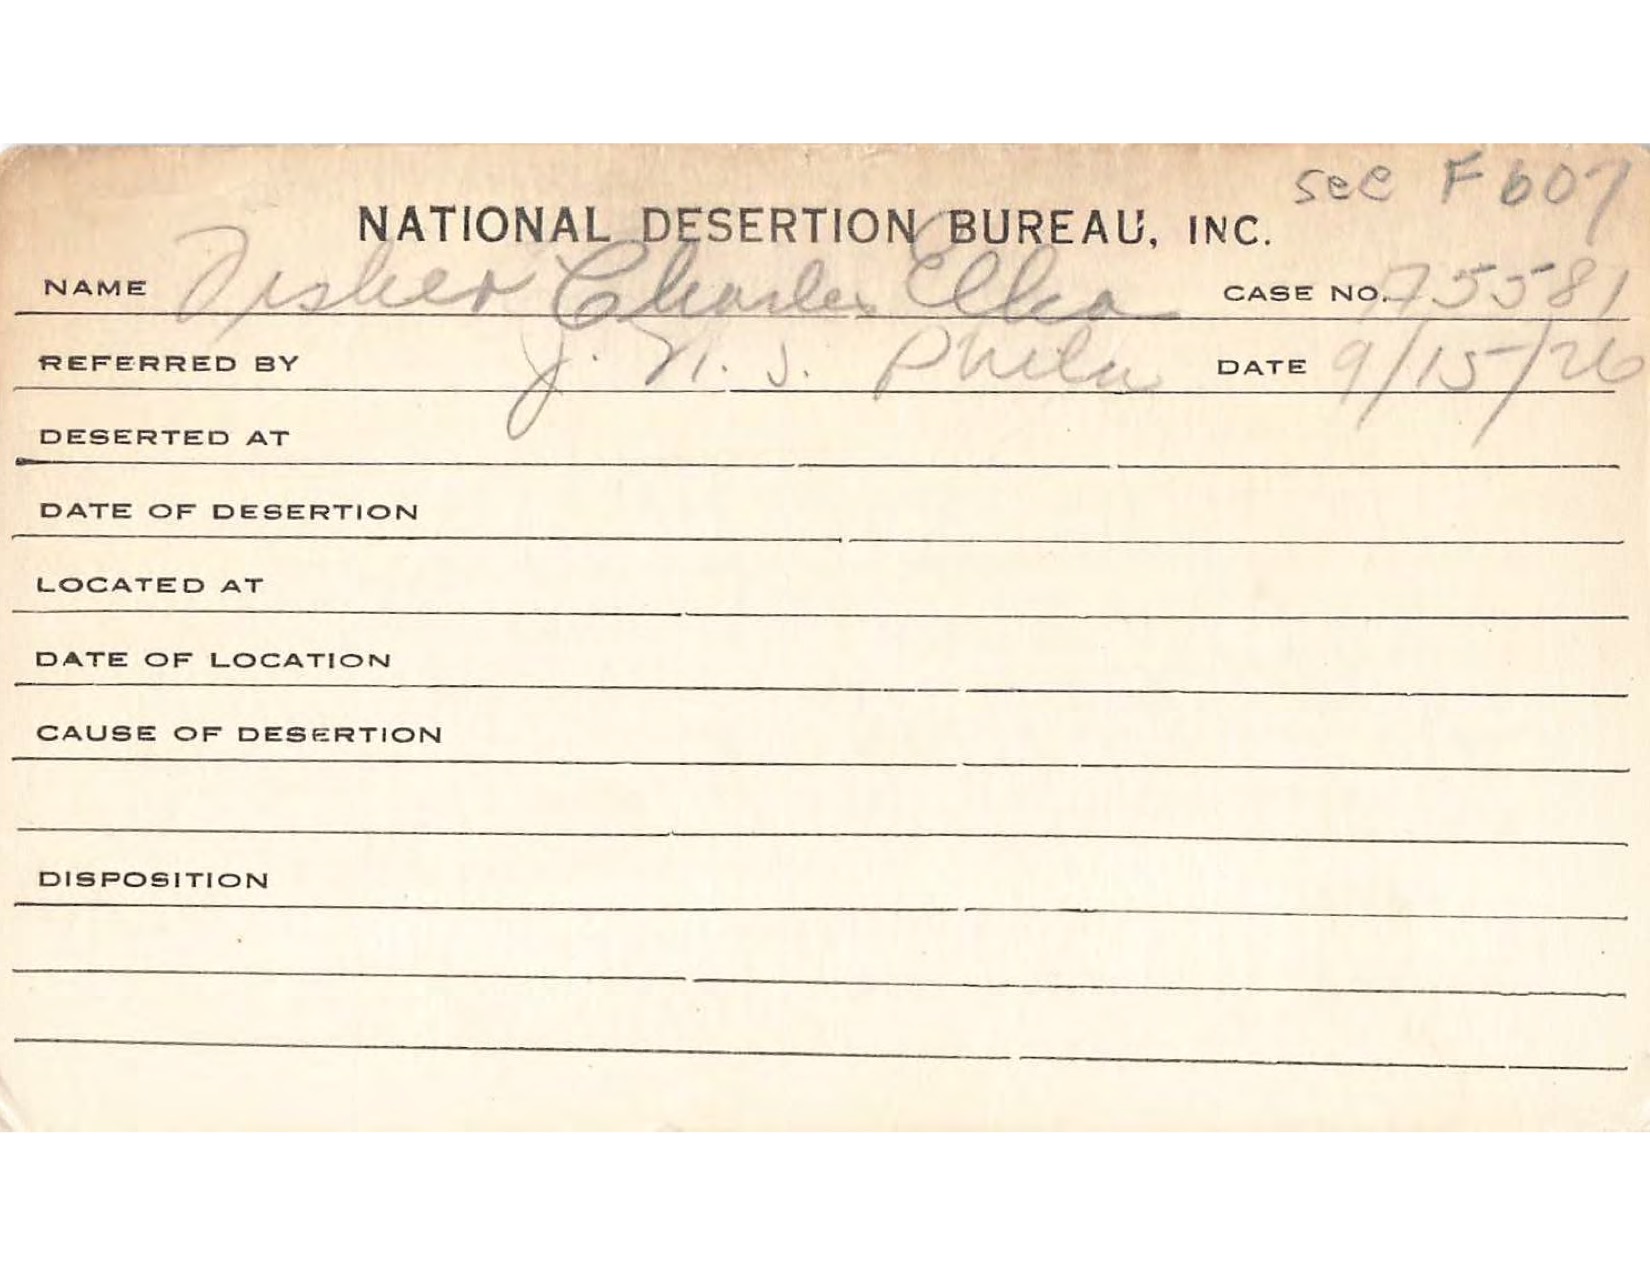 see F607
NATIONAL DESERTION BUREAU, INC.
NAME Fisher Charles Elka CASE NO. 75581
REFERRED BY J. W. S. Phila DATE 9/15/26
DESERTED AT
DATE OF DESERTION
LOCATED AT
DATE OF LOCATION
CAUSE OF DESERTION
DISPOSITION